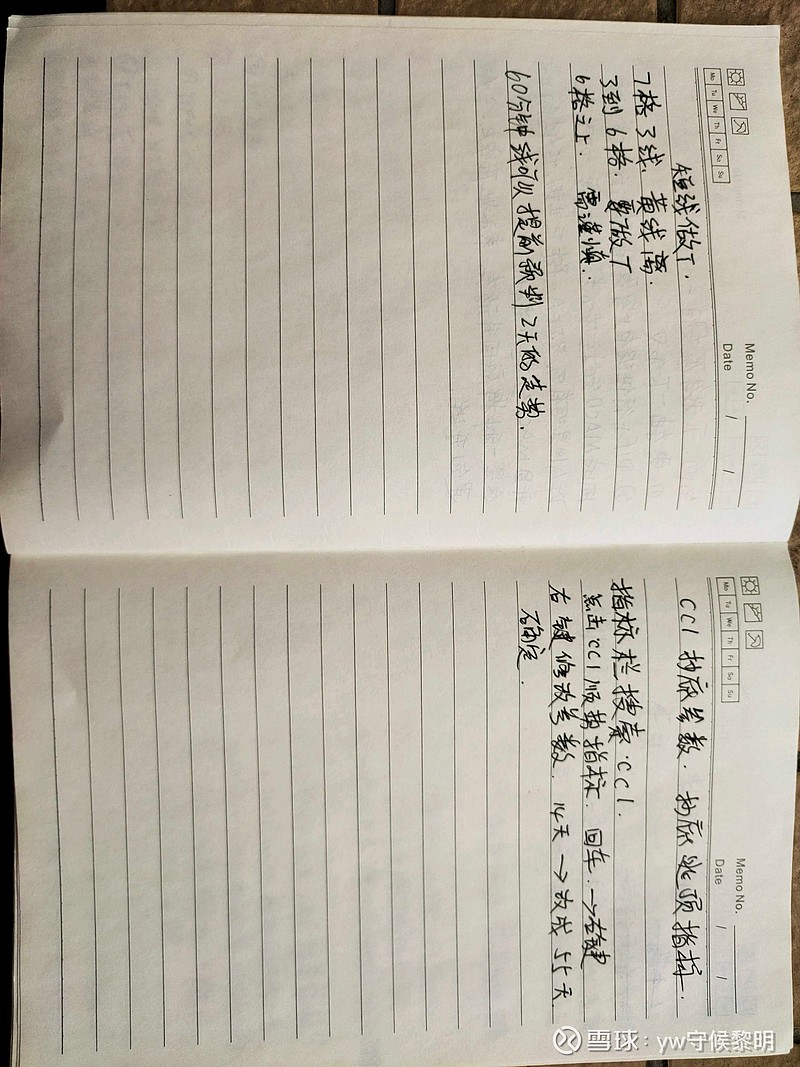 Memo No.
Mo Tu We Th Fr Sa Su
Date / /
短线做T.
7格3线. 黄线离.
3到6格. 要做T
6格之上. 需谨慎.
60分钟线可以提前预判2天的走势.
Memo No.
Mo Tu We Th Fr Sa Su
Date / /
CCI抄底参数. 抄底逃顶指标.
指标栏搜索. CCI.
点击CCI顺势指标. 回车. →右键
右键修改参数. 14天→改成55天
确定.
雪球:yw守候黎明